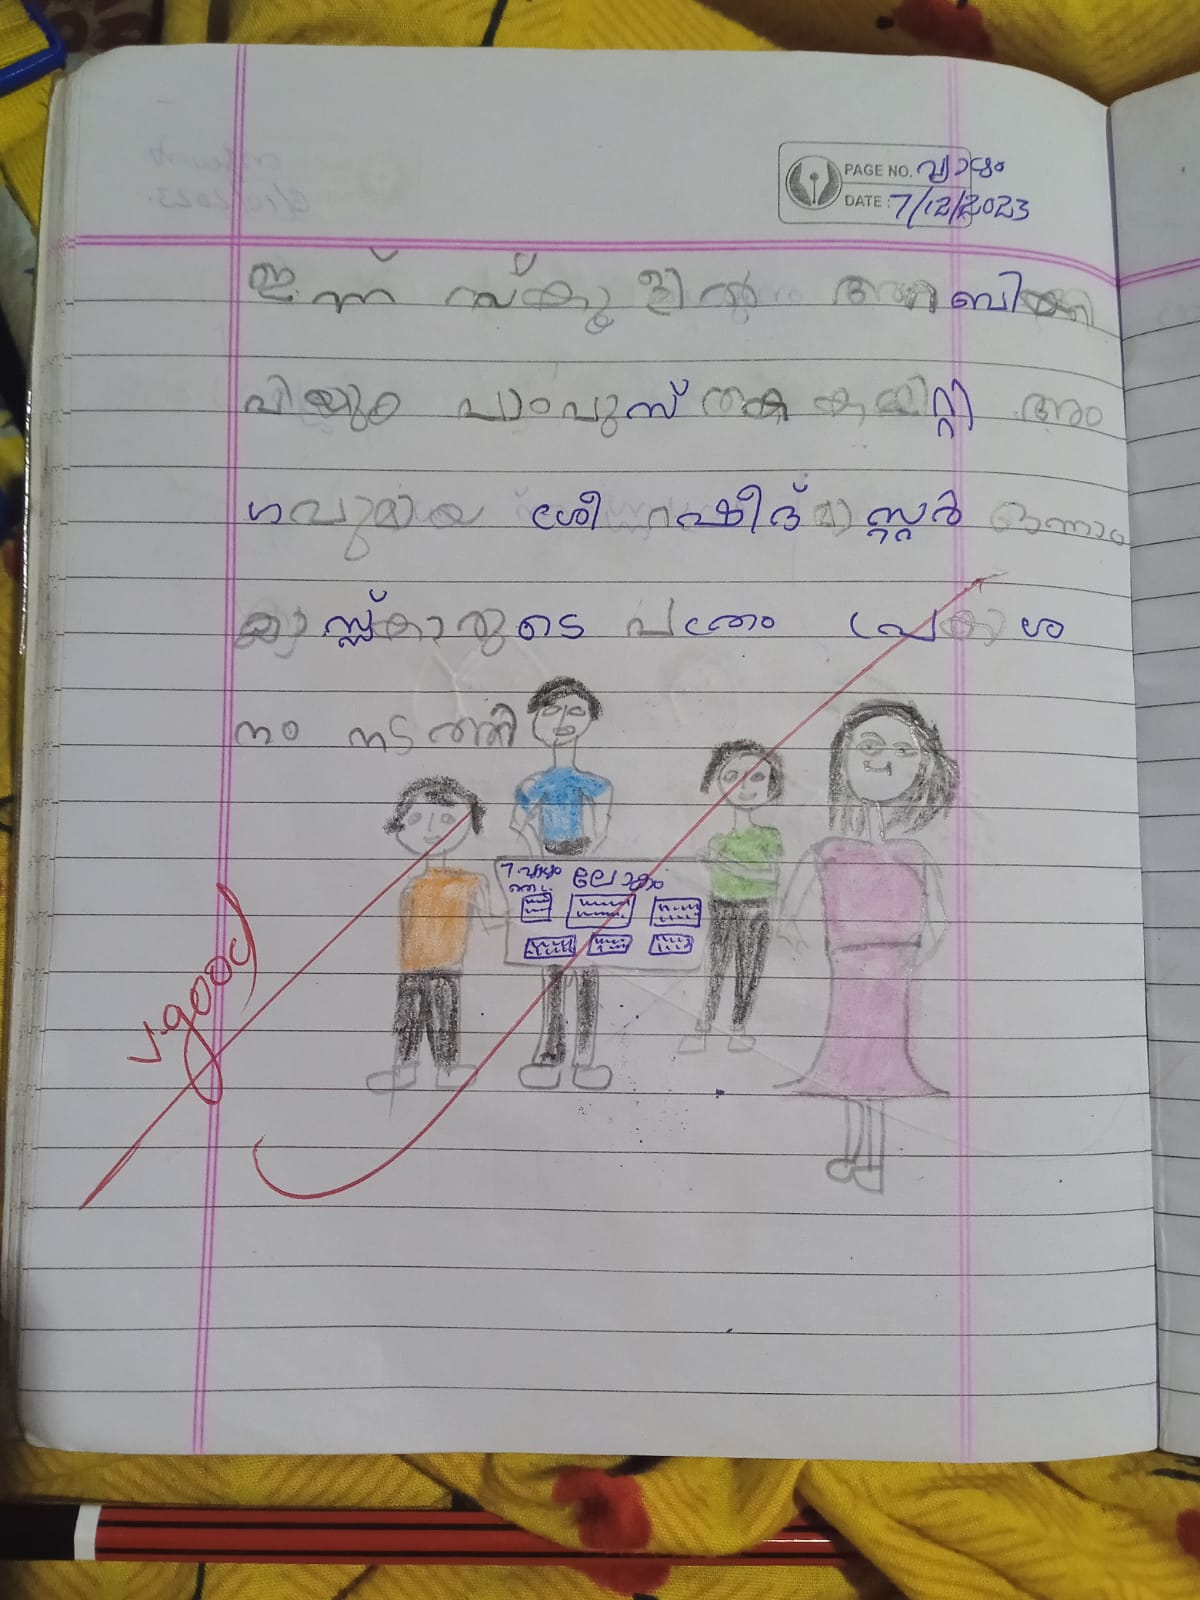 PAGE NO. വ്യാഴം
DATE: 7/12/2023
ഇന്ന് സ്കൂളിന്റെ
പിയും പാഠപുസ്തക കമ്മിറ്റി അം
ഗവുമായ ശ്രീ റഷീദ് മാസ്റ്റർ ഒന്നാം
ക്ലാസ്സ്കാരുടെ പത്രം പ്രകാശ
നം നടത്തി
7 വ്യാഴം
v.good